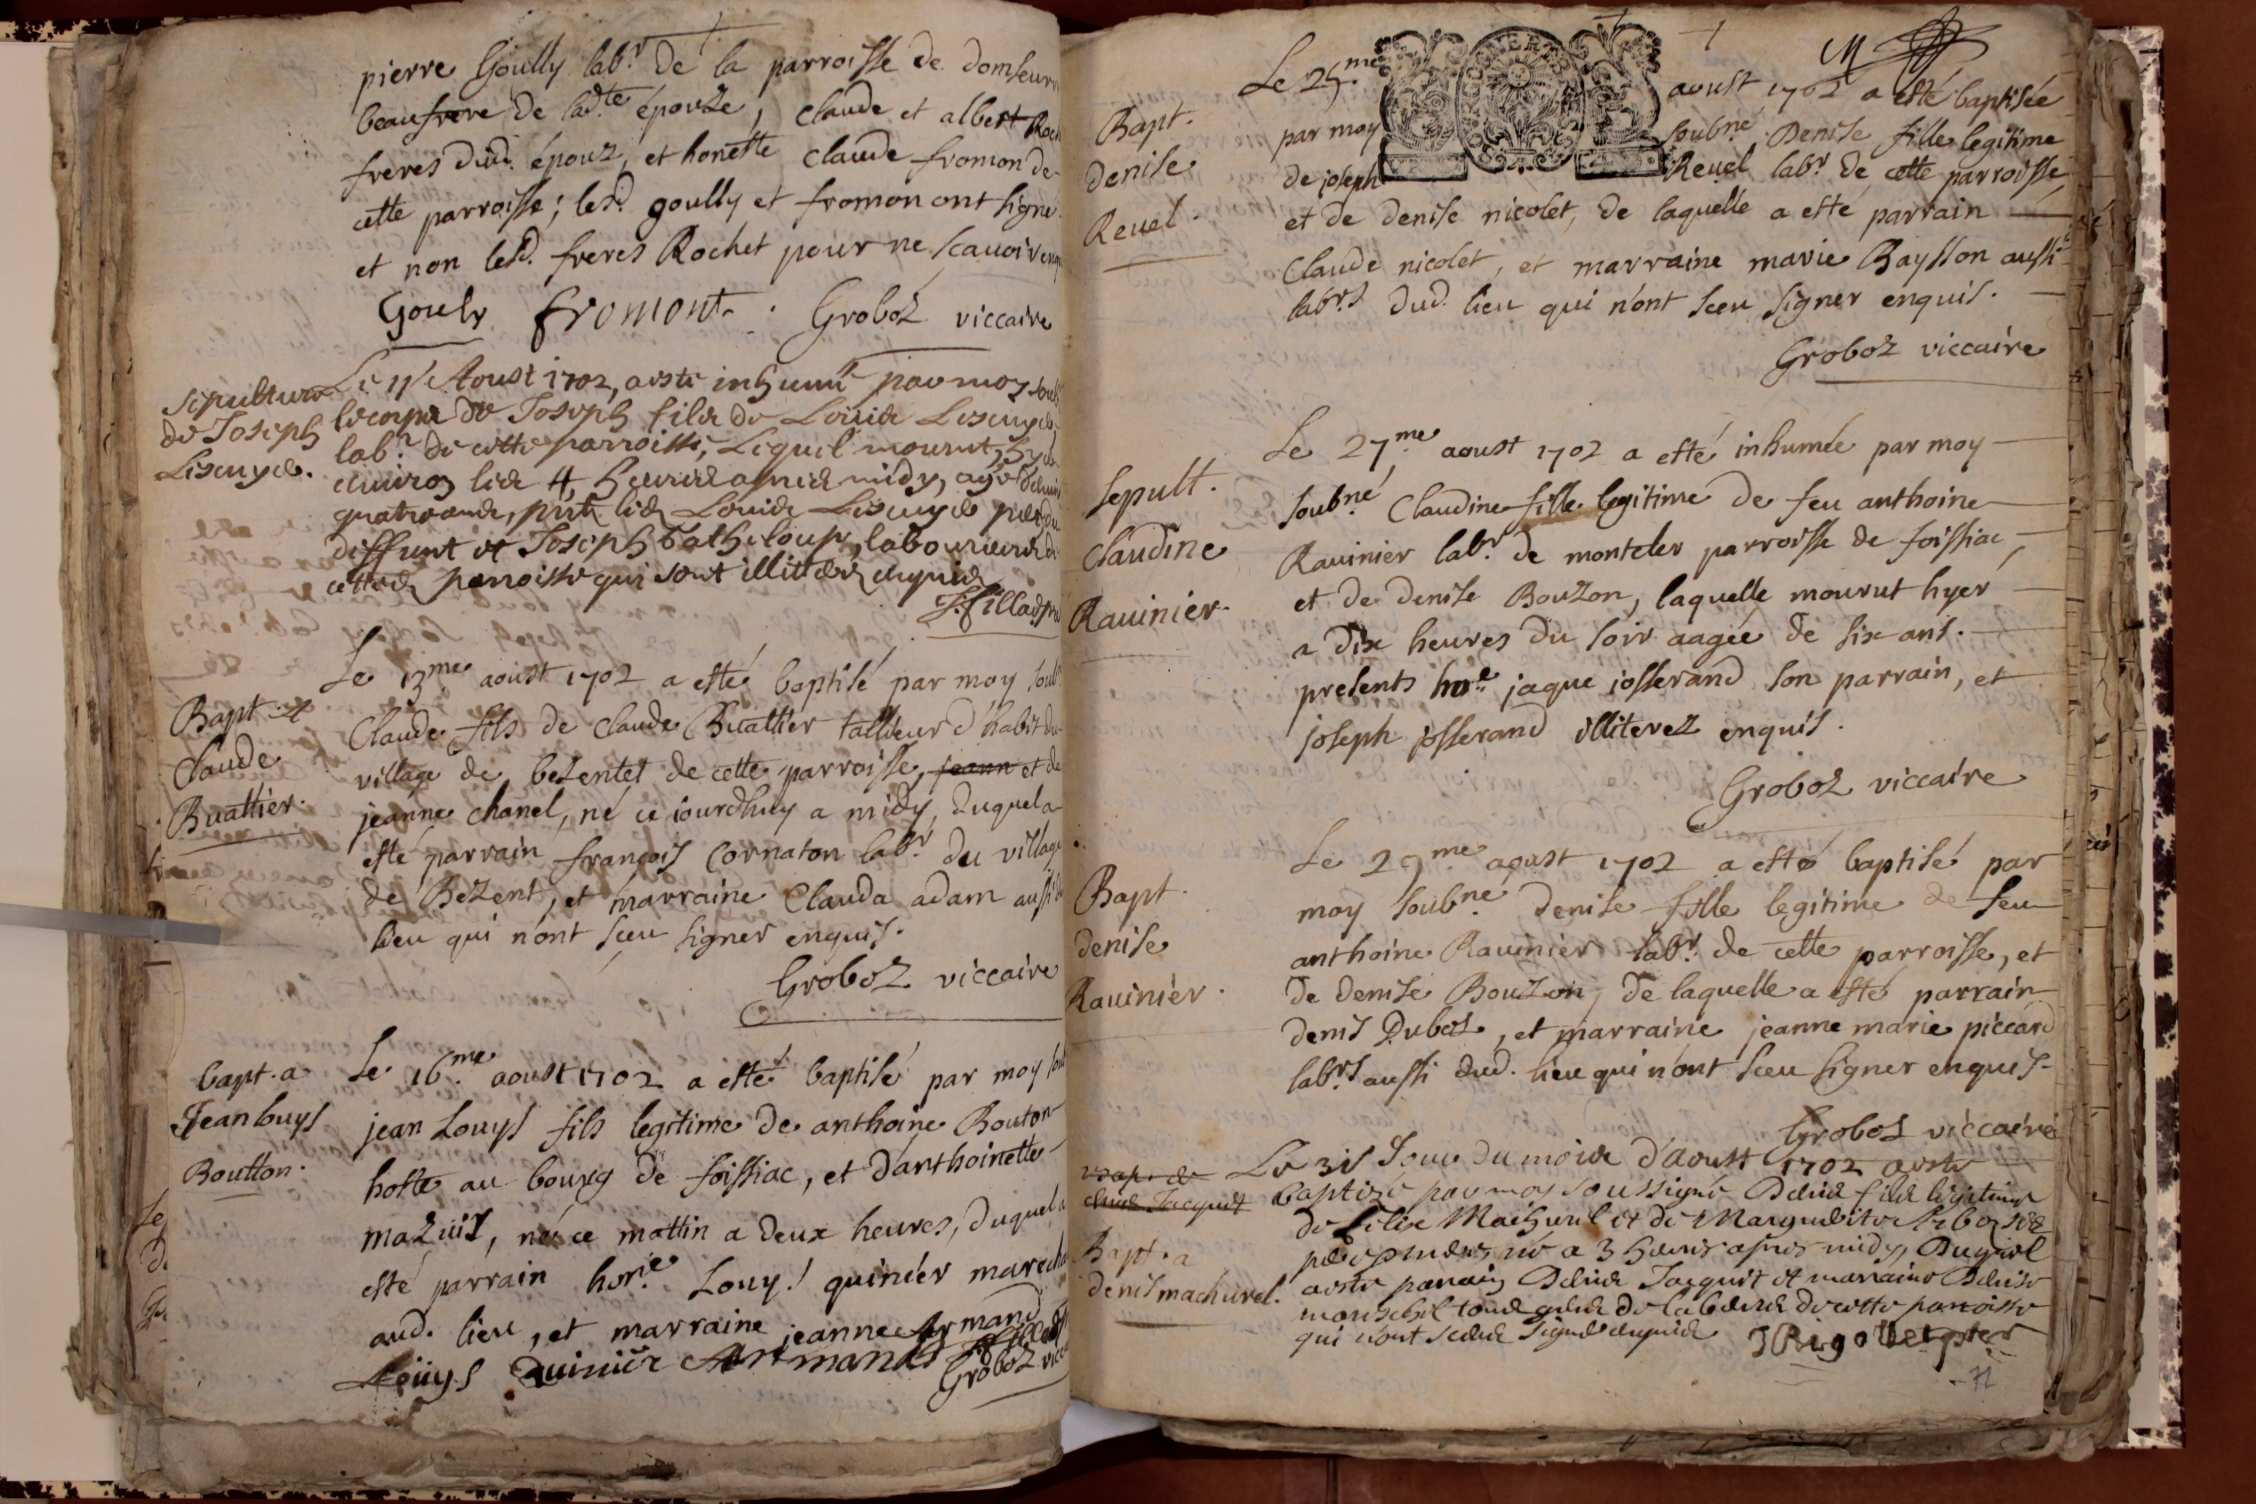 pierre Goully labr. de la parroisse de domseure
beaufrere de ladte épouze, claude et albert Roch
freres dud. épouz, et honeste claude fromon de
cette parroisse; lesd. goully et fromon ont signé
et non lesd. freres Rochet pour ne scauoir enqu
Gouly fromont. Groboz viccaire
sepulture
de Joseph
Lescuyer.
Le 11e Aoust 1702, a esté inhumé par moy soub
le corps de Joseph fils de Louis Lescuyer
labr. de cette parroisse, Lequel mourut hyer
enuiron les 4 heures apres midy, agé
quatre ans, pnts les Louis Lescuyer pere du
deffunt et Joseph Batheloup, laboureurs de
cette parroisse qui sont illiterez enquis
Bapt.
Claude
Buattier.
Le 13me. aoust 1702 a esté baptisé par moy soub
Claude fils de claude Buattier tallieur d'habit du
village de bezentet de cette parroisse, jeann et de
jeanne chanel, né ce jourdhuy a midy, duquel a
esté parrain françois Cornaton labr. du village
de Bezent, et marraine Clauda adam aussi d
lieu qui n'ont sceu signer enquis.
Groboz viccaire
bapt. a
Jean louys
Boutton.
Le 16me. aoust 1702 a esté baptisé par moy sou
jean Louys fils legitime de anthoine Bouton
hoste au bourg de foissiac, et d'anthoinette
mazuis, né ce mattin a deux heures, duquel a
esté parrain hone. Louys quinier marecha
aud. lieu, et marraine jeanne Armand
Loüys Quinier Armand
Groboz vicc
Bapt.
denise
Reuel.
Le 25me. aoust 1702 a esté baptisée
par moy soubné. Denise fille legitime
de joseph Reuel labr. de cette parroisse
et de denise nicolet, de laquelle a esté parrain
Claude nicolet, et marraine marie Baysson aussi
labrs dud. lieu qui n'ont sceu signer enquis.
Groboz viccaire
Sepult.
Claudine
Rauinier.
Le 27me. aoust 1702 a esté inhumée par moy
soubné. Claudine fille legitime de feu anthoine
Rauinier labr. de monteler parroisse de foissiac,
et de denise Bouzon, laquelle mourut hyer
a dix heures du soir aagée de six ans.
presents hone. jaque josserand son parrain, et
joseph josserand illiterez enquis.
Groboz viccaire
Bapt.
denise
Rauinier.
Le 29me. aoust 1702 a esté baptisé par
moy soubné. denise fille legitime de feu
anthoine Rauinier labr. de cette parroisse, et
de denise Bouzon, de laquelle a esté parrain
denis Dubois, et marraine jeanne marie piccard
labrs aussi dud. lieu qui n'ont sceu signer enquis.
Groboz viccaire
Bapt. a
denis machurel.
Le 31 Jour du mois d'aoust 1702 a esté
baptizé par moy soussigné Denis fils legitime
de felix Machurel et de Marguerite
né a 3 heures apres midy, Duquel
a esté parrain Denis Jacquet et marraine Denise
mareschal tous deux de labeurs de cette parroisse
qui n'ont sceu signé enquis JRigollet pter